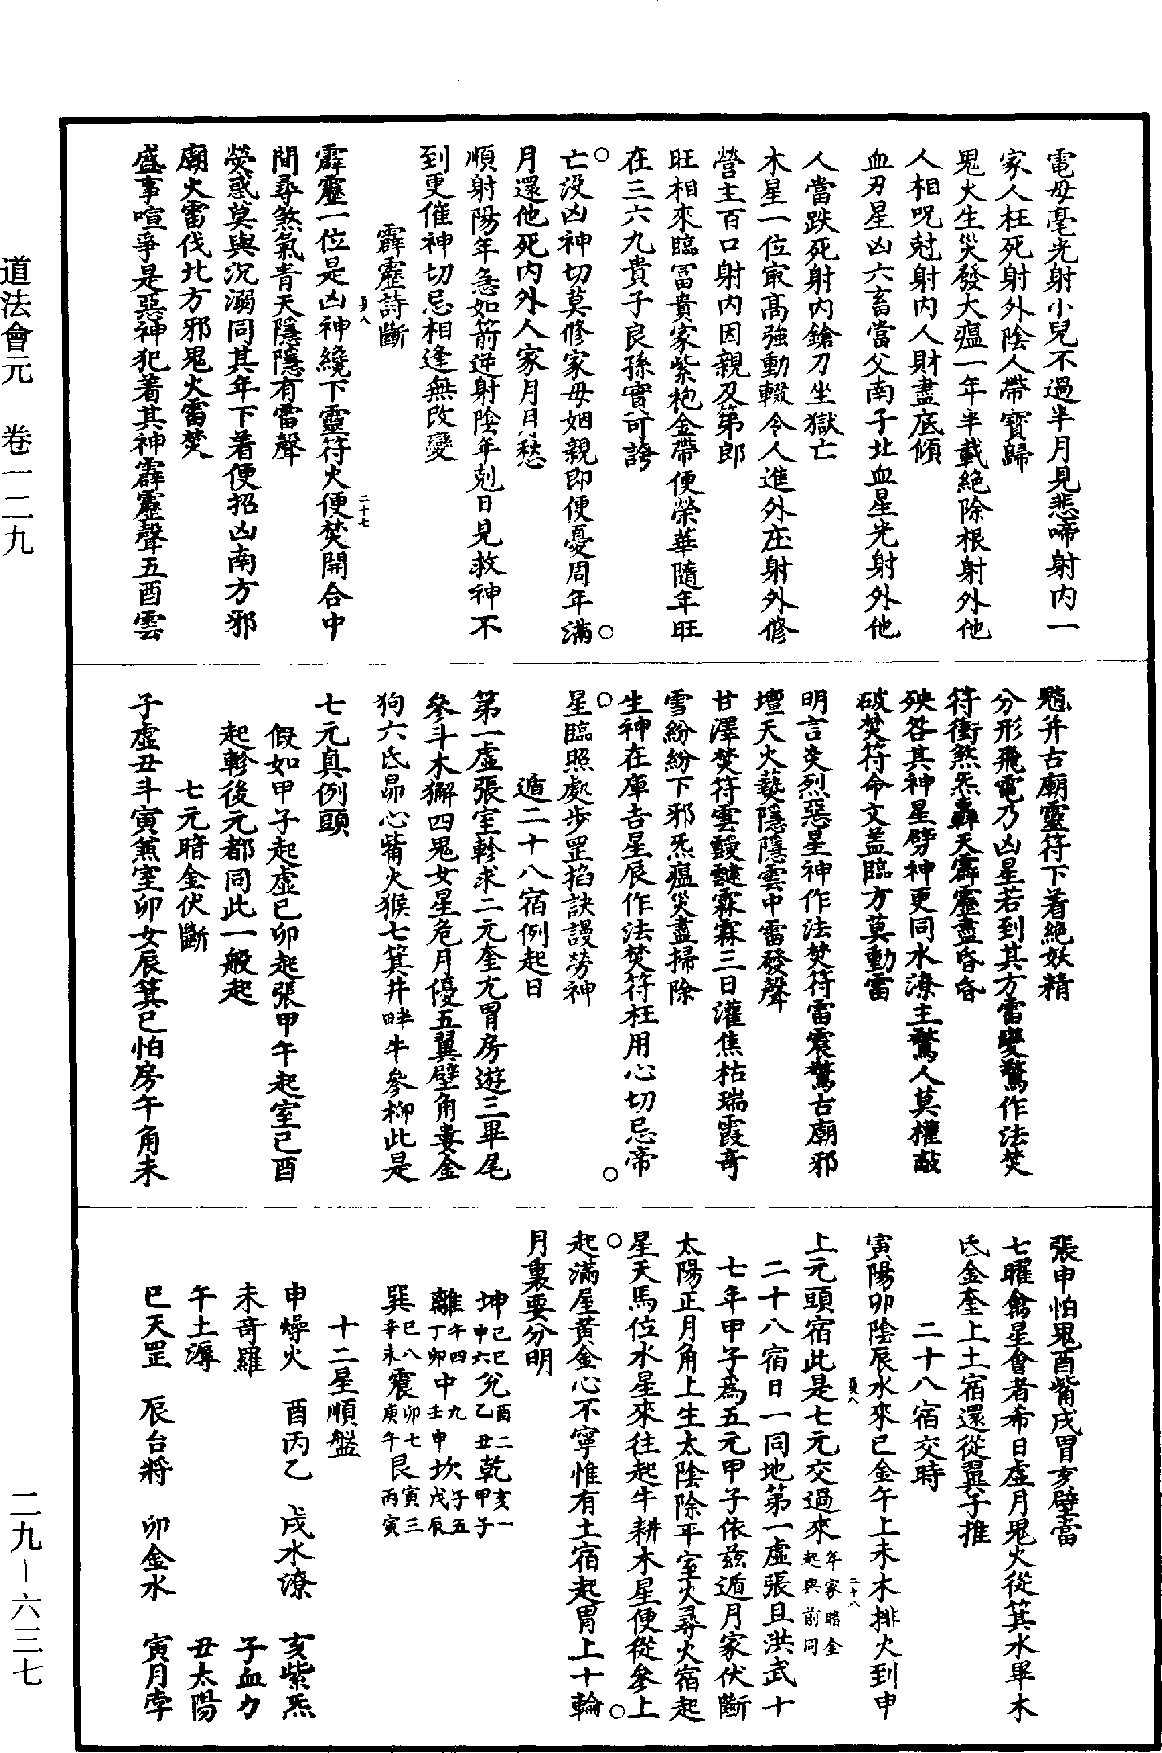 電母毫光射小兒不過半月見悲啼射內一
家人枉死射外陰人帶寶歸
鬼火生災發大瘟一年半載絕除根射外他
人相呪尅射內人財盡底傾
血刃星凶六畜當父南子北血星光射外他
人當跌死射內鎗刀坐獄亡
木星一位㝡高強動輟令人進外庄射外修
營主百口射內因親及第郎
旺相來臨冨貴家紫袍金帶便榮華隨年旺
在三六九貴子良孫實可誇
亡沒凶神切莫修家母姻親即便憂周年滿
月還他死內外人家月月愁
順射陽年急如箭逆射陰年剋日見救神不
到更催神切忌相逢無改變
霹靂詩斷
霹靂一位是凶神纔下靈符火便焚開合中
間尋煞氣青天隱隱有雷聲
熒惑莫與沉溺同其年下着便招凶南方邪
廟火雷伐北方邪鬼火雷焚
盛事喧爭是惡神犯着其神霹靂聲五酉雲
魈并古廟靈符下着絕妖精
分形飛電乃凶星若到其方雷變驚作法焚
符衝煞炁轟天霹靂盡昏昏
殃咎其神星劈神更同水潦主驚人莫權敲
破焚符命文盖臨方莫動雷
明言炎烈惡星神作法焚符雷震驚古廟邪
壇天火爇隱隱雲中雷發聲
甘澤焚符雲靉靆霖霖三日灌焦枯瑞霞奇
雪紛紛下邪炁瘟災盡掃除
生神在庫吉星辰作法焚符枉用心切忌帝
星臨照處步罡掐訣謾勞神
遁二十八宿例起日
第一虛張室軫求二元奎亢胃房遊三畢尾
參斗木獬四鬼女星危月優五翼壁角婁金
狗六氐昴心觜火猴七箕井畔牛參柳此是
七元真例頭
假如甲子起虛己卯起張甲午起室己酉
起軫後元都同此一般起
七元暗金伏斷
子虛丑斗寅煞室卯女辰箕巳怕房午角未
張申怕鬼酉觜戌胃亥壁當
七曜禽星會者希日虛月鬼火從箕水畢木
氐金奎上土宿還從翼子推
二十八宿交時
寅陽卯陰辰水來巳金午上未木排火到申
上元頭宿此是七元交過來年家暗金起與前同
二十八宿日一同地第一虛張且洪武十
七年甲子為五元甲子依茲遁月家伏斷
太陽正月角上生太陰除平室火尋火宿起
星天馬位水星來往起牛耕木星便從參上
起滿屋黃金心不寧惟有土宿起胃上十輪
月裏要分明
坤己巳申六兌酉二乙丑乾亥一甲子
離午四丁卯中九壬申坎子五戊辰
巽巳八辛未震卯七庚午艮寅三丙寅
十二星順盤
申燥火 酉丙乙 戌水潦 亥紫炁
未奇羅 子血刃
午土溽 丑太陽
巳天罡 辰台將 卯金水 寅月孛
道法會元 卷一二九
二九—六三七